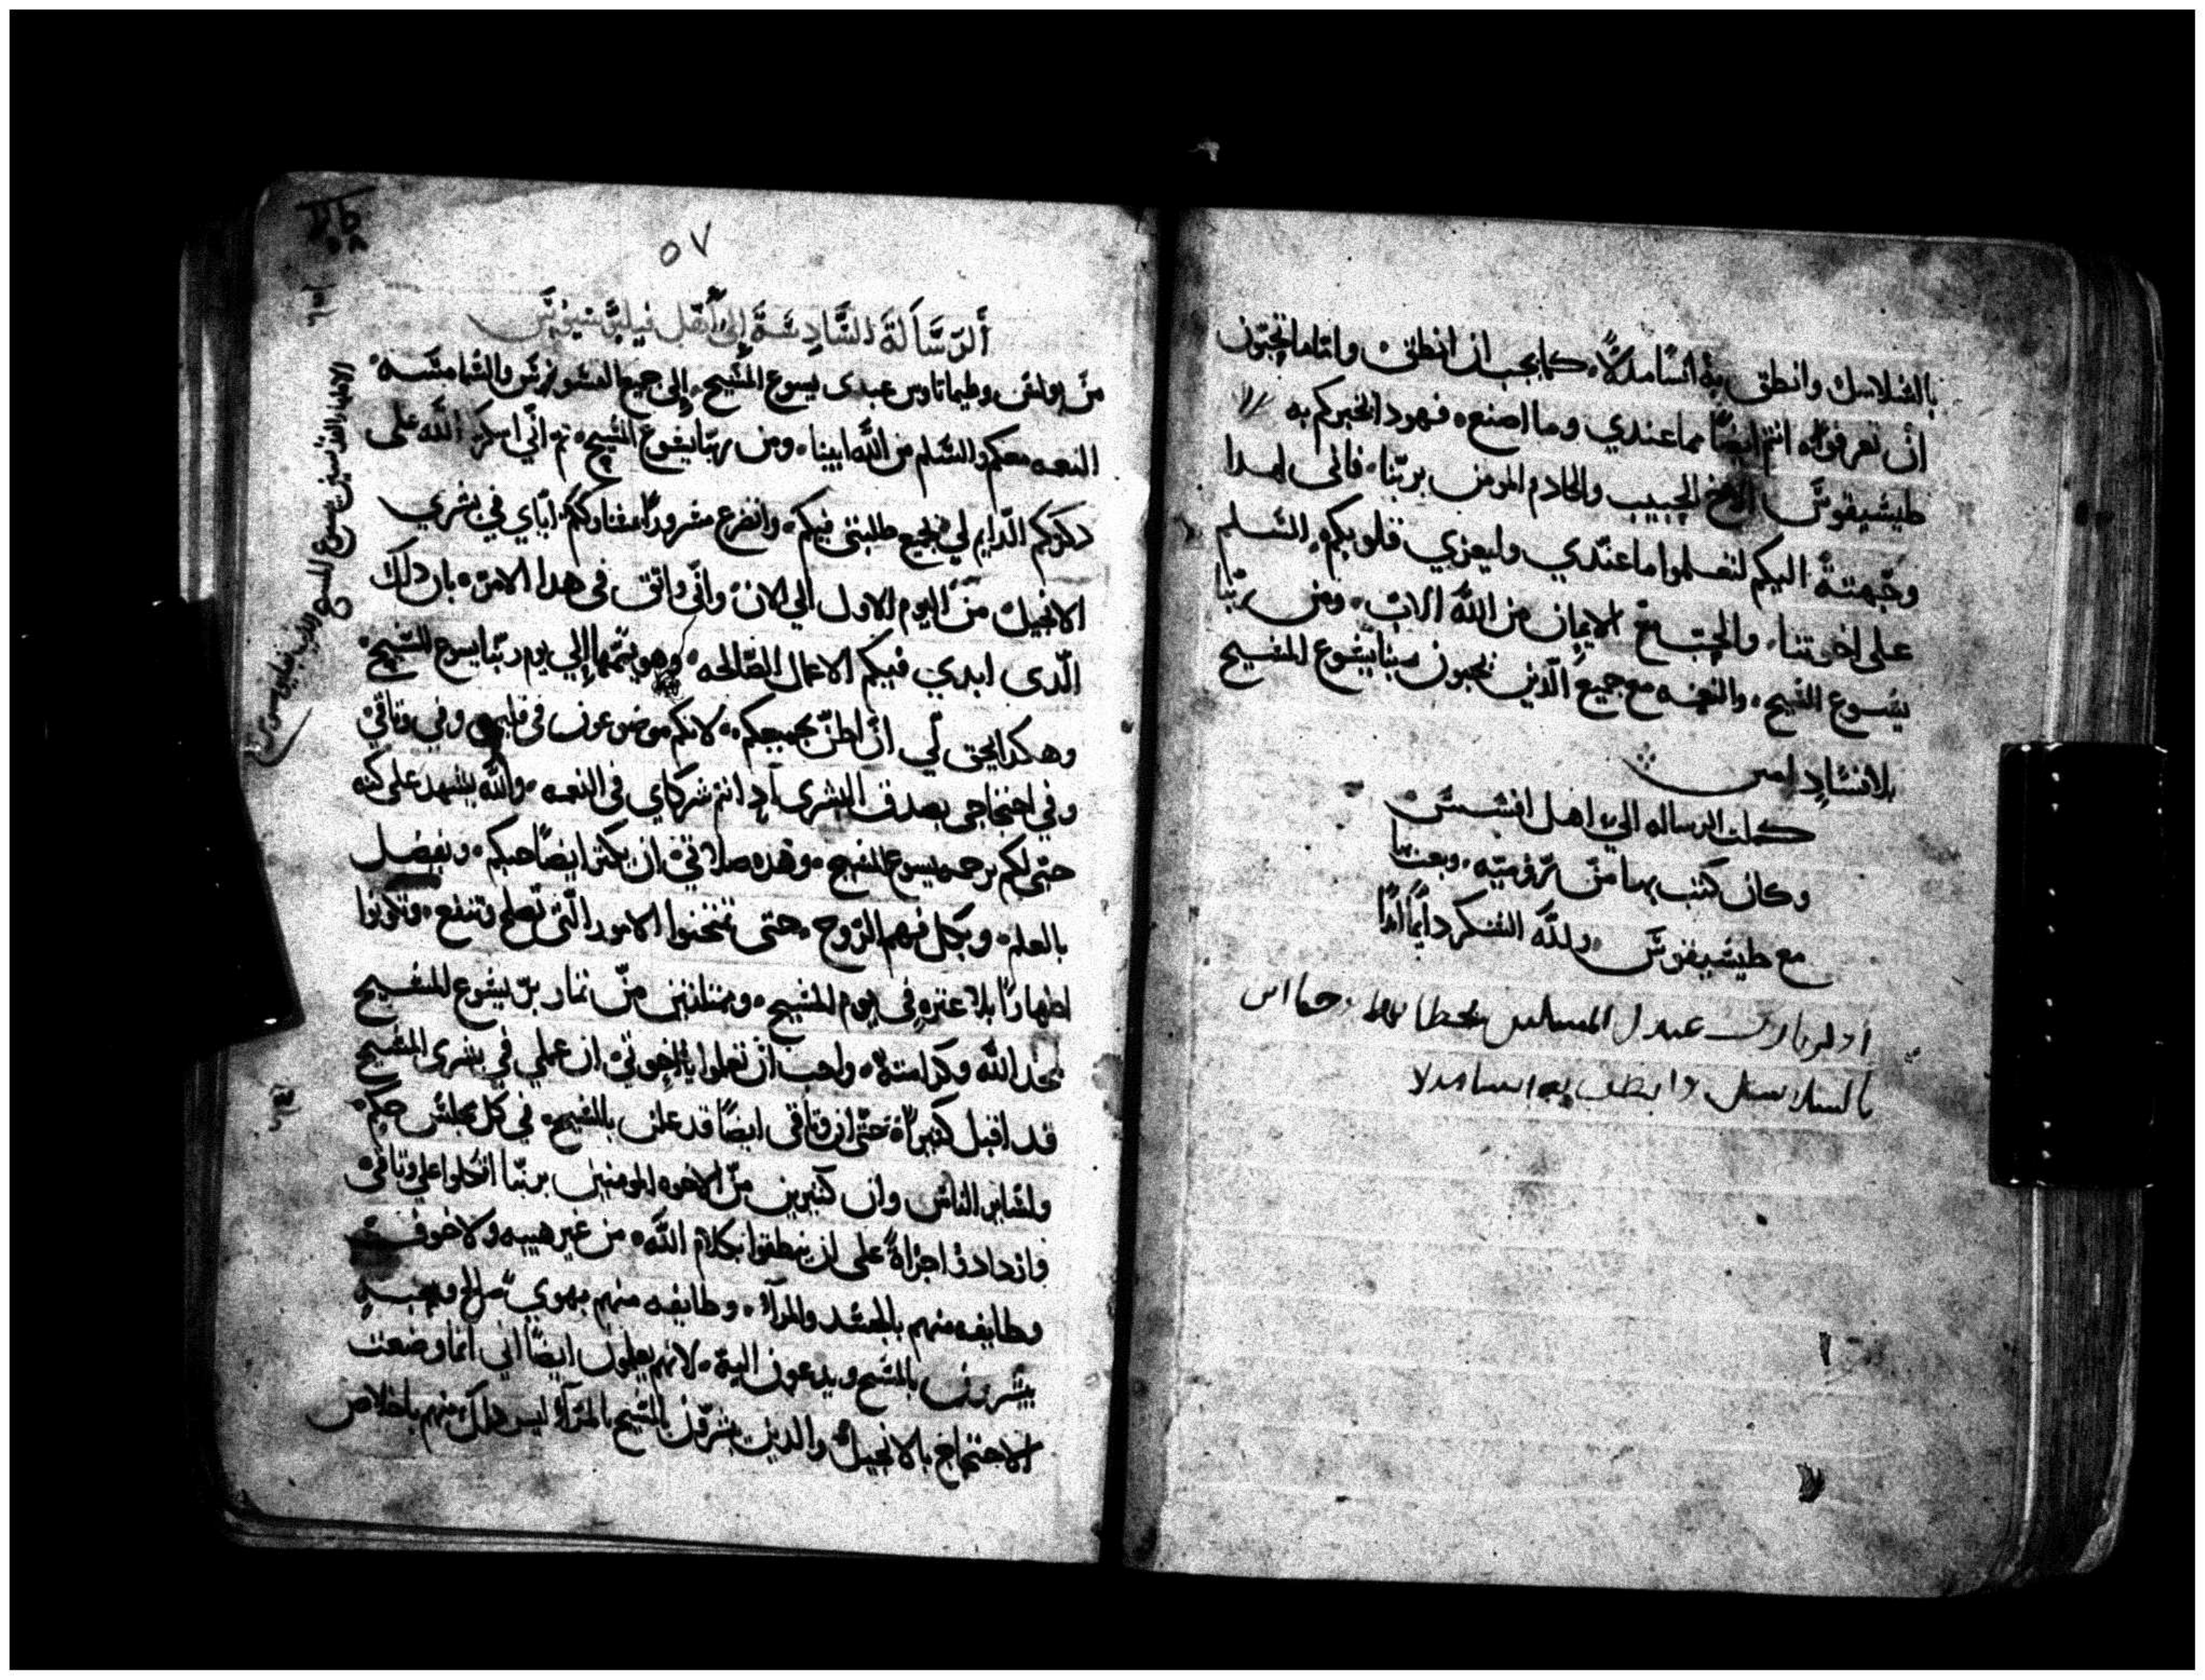 بالسلاسل وانطق به انسًا مدلاً، كما يجب ان انطق، وانا ما تحبون
ان تعرفوه انتم ايضًا مما عندي وما اصنع، فهودا اخبركم به
طيشيقوس الاخ الحبيب والخادم المومن بربّنا، فاني لهدا
وجّهته اليكم لتعلموا ما عندي وليعزي قلوبكم، السلم
على اخوتنا، والحب مع الايمان من الله الاب، ومن ربّنا
يسوع المسيح، والنعمه مع جميع الّدين يحبون ربنا يسوع المسيح
بلا فساد امين
كملت الرساله الي اهل افسس
وكان كتب بها من روميّه، وبعث بها
مع طيشيقوس، ولله الشكر دايمًا ابدًا
بالسلاسل وانطق به انسا مدلا
٥٧
٥٨
ألرّسَالَة السَّادِسَة إلى أهل فيلبسيوس
من بولس وطيماتاوس عبدى يسوع المسيح، إلى جميع القسوس والشمامسه
الاطهار القديسين بيسوع المسيح الدين بفيلبسيوس
النعمه معكم والسلم من الله ابينا، ومن ربّنا يسوع المسيح، تم انّي اسكر الله على
دكركم الدايم لي في جميع طلبتي فيكم، واتضرع مسرورًا لمشاركتكم اياي في بشري
الانجيل من اليوم الاول الي الان، واني واثق في هدا الامر، بان دلك
الّدى ابدي فيكم الاعمال الصّالحه، وهو يتممها إلي يوم ربّنا يسوع المسيح
وهكدا يحق لي ان اظنّ بجميعكم، لانكم موضوعون في قلبي وفي وتاقي
وفي احتجاجي بصدق البشرى اد انتم شركاي في النعمه، والله يشهد على كنه
حبّي لكم برحمه يسوع المسيح، وهده صلاتي، ان يكتر ايضًا حبكم، ويفضل
بالعلم، وبكل فهم الرّوح، حتى تمتحنوا الامور الّتي تصلح وتنفع، وتكونوا
اطهارًا بلا عتره في يوم المسيح، وممتلئين من تمار بر يسوع المسيح
لمجد الله وكرامته، واحب ان تعلموا يا اخوتي ان عملي في بشرى المسيح
قد اقبل كتيرًا، حتّى ان وتاقي ايضًا قد علن بالمسيح، في كل مجلس حكم
ولساير الناس وان كتيرين من الاخوه المومنين بربّنا اتكلوا على وتاقي
وازدادو اجراةً على ان ينطقوا بكلام الله، من غير هيبه ولا خوف
وطايفه منهم بالحسد والمرآ، وطايفه منهم بهوي صالح ومحبه
يبشرون بالمسيح ويدعون اليه، لانهم يعلمون ايضًا اني انما وضعت
الاحتجاج بالانجيل والدين يبشرون بالمسيح بالمرآ ليس دلك منهم باخلاص